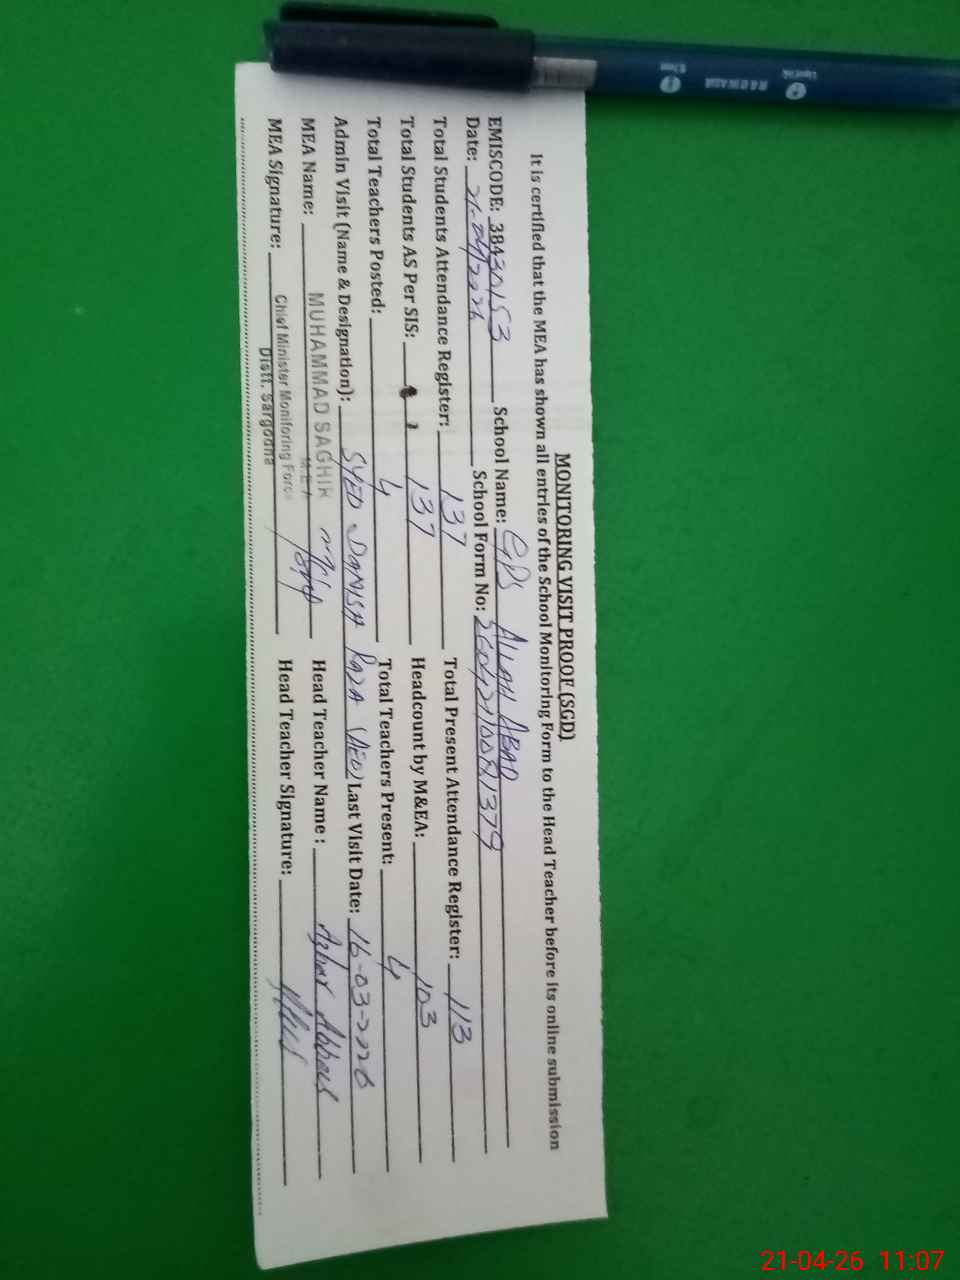 MONITORING VISIT PROOF (SGD)
It is certified that the MEA has shown all entries of the School Monitoring Form to the Head Teacher before its online submission
EMISCODE: 38430153 School Name: GPS ALLAH ABAD
Date: 21-04-2026 School Form No:
Total Students Attendance Register: 137 Total Present Attendance Register: 113
Total Students AS Per SIS: 137 Headcount by M&EA: 103
Total Teachers Posted: 4 Total Teachers Present: 4
Admin Visit (Name & Designation): SYED DANISH RAZA (AEO) Last Visit Date: 16-03-2026
MEA Name: MUHAMMAD SAGHIR Head Teacher Name : Azhar Abbas
M.E.A
MEA Signature: Chief Minister Monitoring Force Head Teacher Signature:
Distt. Sargodha
21-04-26 11:07